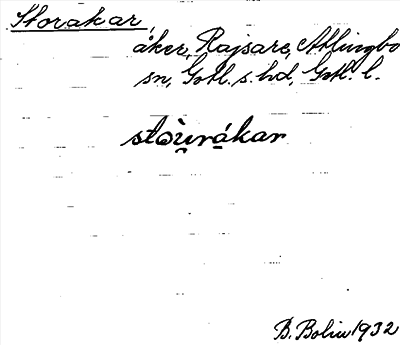 Storakar,
åker, Rajsare, Atlingbo
sn, Gotl. s. hd, Gotl. l.
stòu̯rákar
B. Bolin 1932